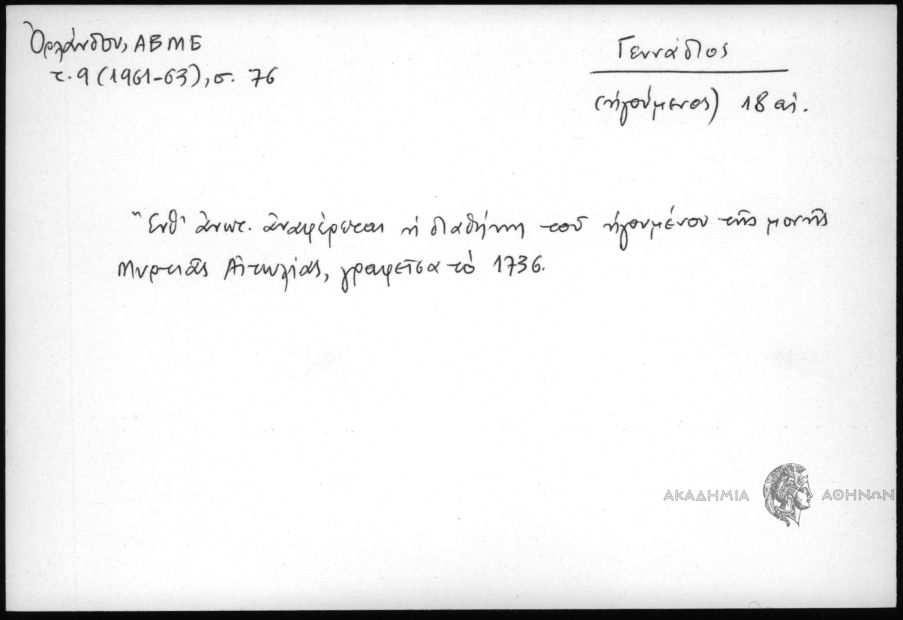 Ὀρλάνδου, ΑΒΜΕ
τ. 9 (1961-63), σ. 76
Γεννάδιος
(ἡγούμενος) 18 αἰ.
Ἔνθ' ἀνωτ. ἀναφέρεται ἡ διαθήκη τοῦ ἡγουμένου τῆς μονῆς
Μυρτιᾶς Αἰτωλίας, γραφεῖσα τὸ 1736.
ΑΚΑΔΗΜΙΑ ΑΘΗΝΩΝ